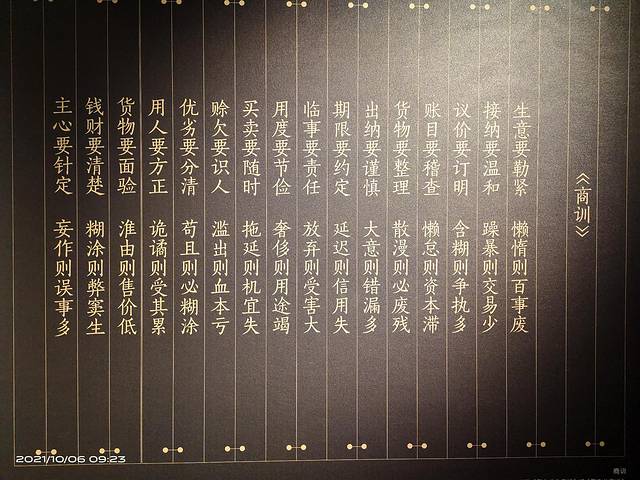 《商训》
生意要勤紧 懒惰则百事废
接纳要温和 躁暴则交易少
议价要订明 含糊则争执多
账目要稽查 懒怠则资本滞
货物要整理 散漫则必废残
出纳要谨慎 大意则错漏多
期限要约定 延迟则信用失
临事要责任 放弃则受害大
用度要节俭 奢侈则用途竭
买卖要随时 拖延则机宜失
赊欠要识人 滥出则血本亏
优劣要分清 苟且则必糊涂
用人要方正 诡谲则受其累
货物要面验 滥由则售价低
钱财要清楚 糊涂则弊窦生
主心要针定 妄作则误事多
2021/10/06 09:23
商训